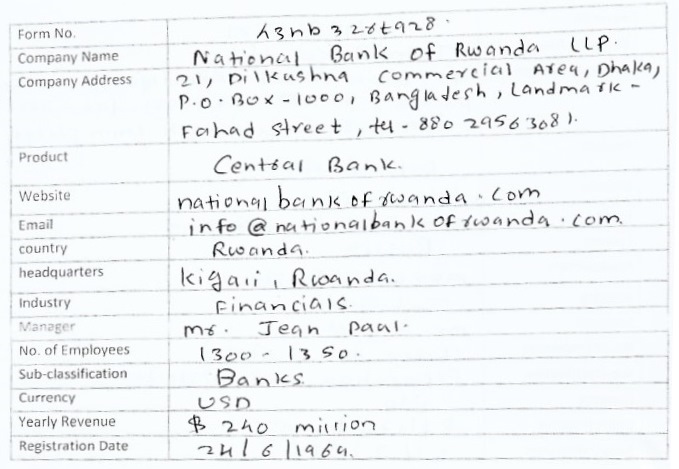 Form No. h3nb328t928.
Company Name National Bank of Rwanda LLP.
Company Address 21, Dilkushna Commercial Area, Dhaka,
P.O. Box - 1000, Bangladesh, Landmark -
Fahad street, tel - 880 29563081.
Product Central Bank.
Website nationalbankofrwanda.com
Email info@nationalbankofrwanda.com.
country Rwanda.
headquarters Kigali, Rwanda.
Industry Financials.
Manager Mr. Jean Paul.
No. of Employees 1300 - 1350.
Sub-classification Banks
Currency USD
Yearly Revenue $ 240 million
Registration Date 24/6/1964.